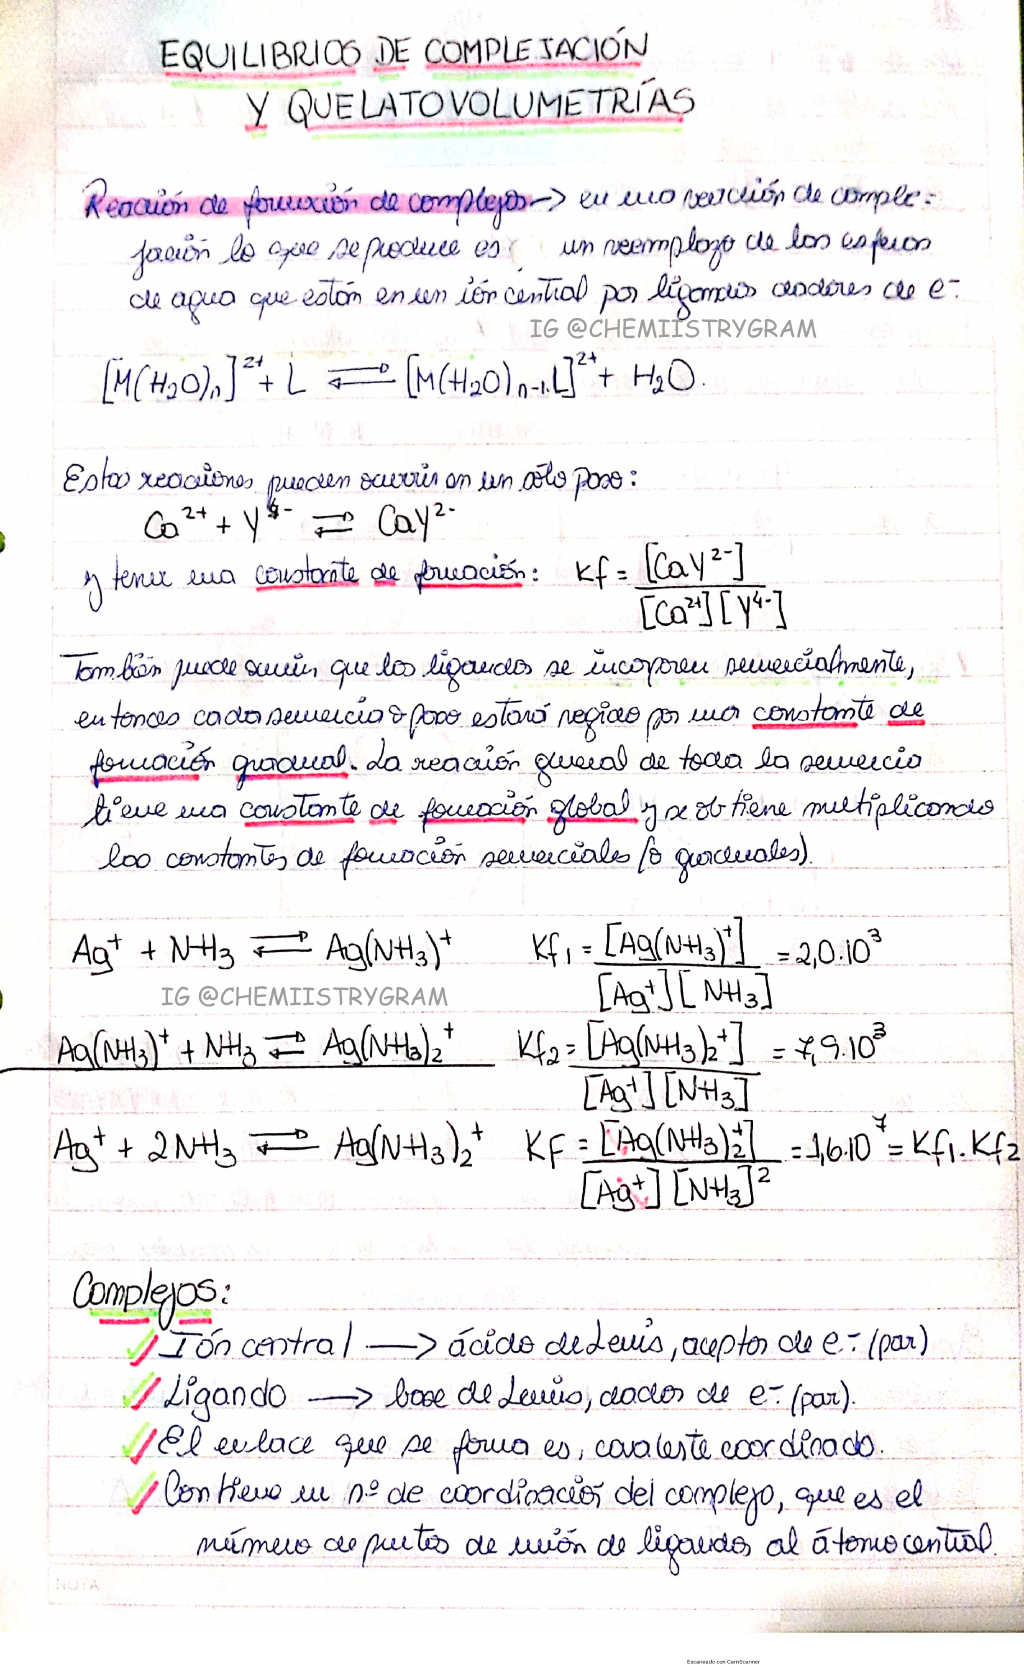 EQUILIBRIOS DE COMPLEJACIÓN
Y QUELATOVOLUMETRÍAS
Reacción de formación de complejos -> en una reacción de comple=
jación lo que se produce es un reemplazo de las esferas
de agua que están en un ión central por ligandos dadores de e-.
IG @CHEMIISTRYGRAM
[M(H₂O)ₙ]²⁺ + L ⇌ [M(H₂O)ₙ₋₁.L]²⁺ + H₂O.
Estas reacciones pueden ocurrir en un sólo paso:
Ca²⁺ + Y⁴⁻ ⇌ CaY²⁻
y tener una constante de formación: Kf = [CaY²⁻] / [Ca²⁺][Y⁴⁻]
También puede ocurrir, que los ligandos se incorporen secuencialmente,
entonces cada secuencia o paso estará regido por una constante de
formación gradual. La reacción general de toda la secuencia
tiene una constante de formación global y se obtiene multiplicando
las constantes de formación secuenciales (o graduales).
Ag⁺ + NH₃ ⇌ Ag(NH₃)⁺ Kf₁ = [Ag(NH₃)⁺] / [Ag⁺][NH₃] = 2,0.10³
IG @CHEMIISTRYGRAM
Ag(NH₃)⁺ + NH₃ ⇌ Ag(NH₃)₂⁺ Kf₂ = [Ag(NH₃)₂⁺] / [Ag⁺][NH₃] = 7,9.10³
Ag⁺ + 2NH₃ ⇌ Ag(NH₃)₂⁺ KF = [Ag(NH₃)₂⁺] / [Ag⁺][NH₃]² = 1,6.10⁷ = Kf₁.Kf₂
Complejos:
Ión central -> ácido de Lewis, aceptor de e- (par)
Ligando -> base de Lewis, dador de e- (par).
El enlace que se forma es, covalente coordinado.
Contiene un nº de coordinación del complejo, que es el
número de puntos de unión de ligandos al átomo central.
Escaneado con CamScanner